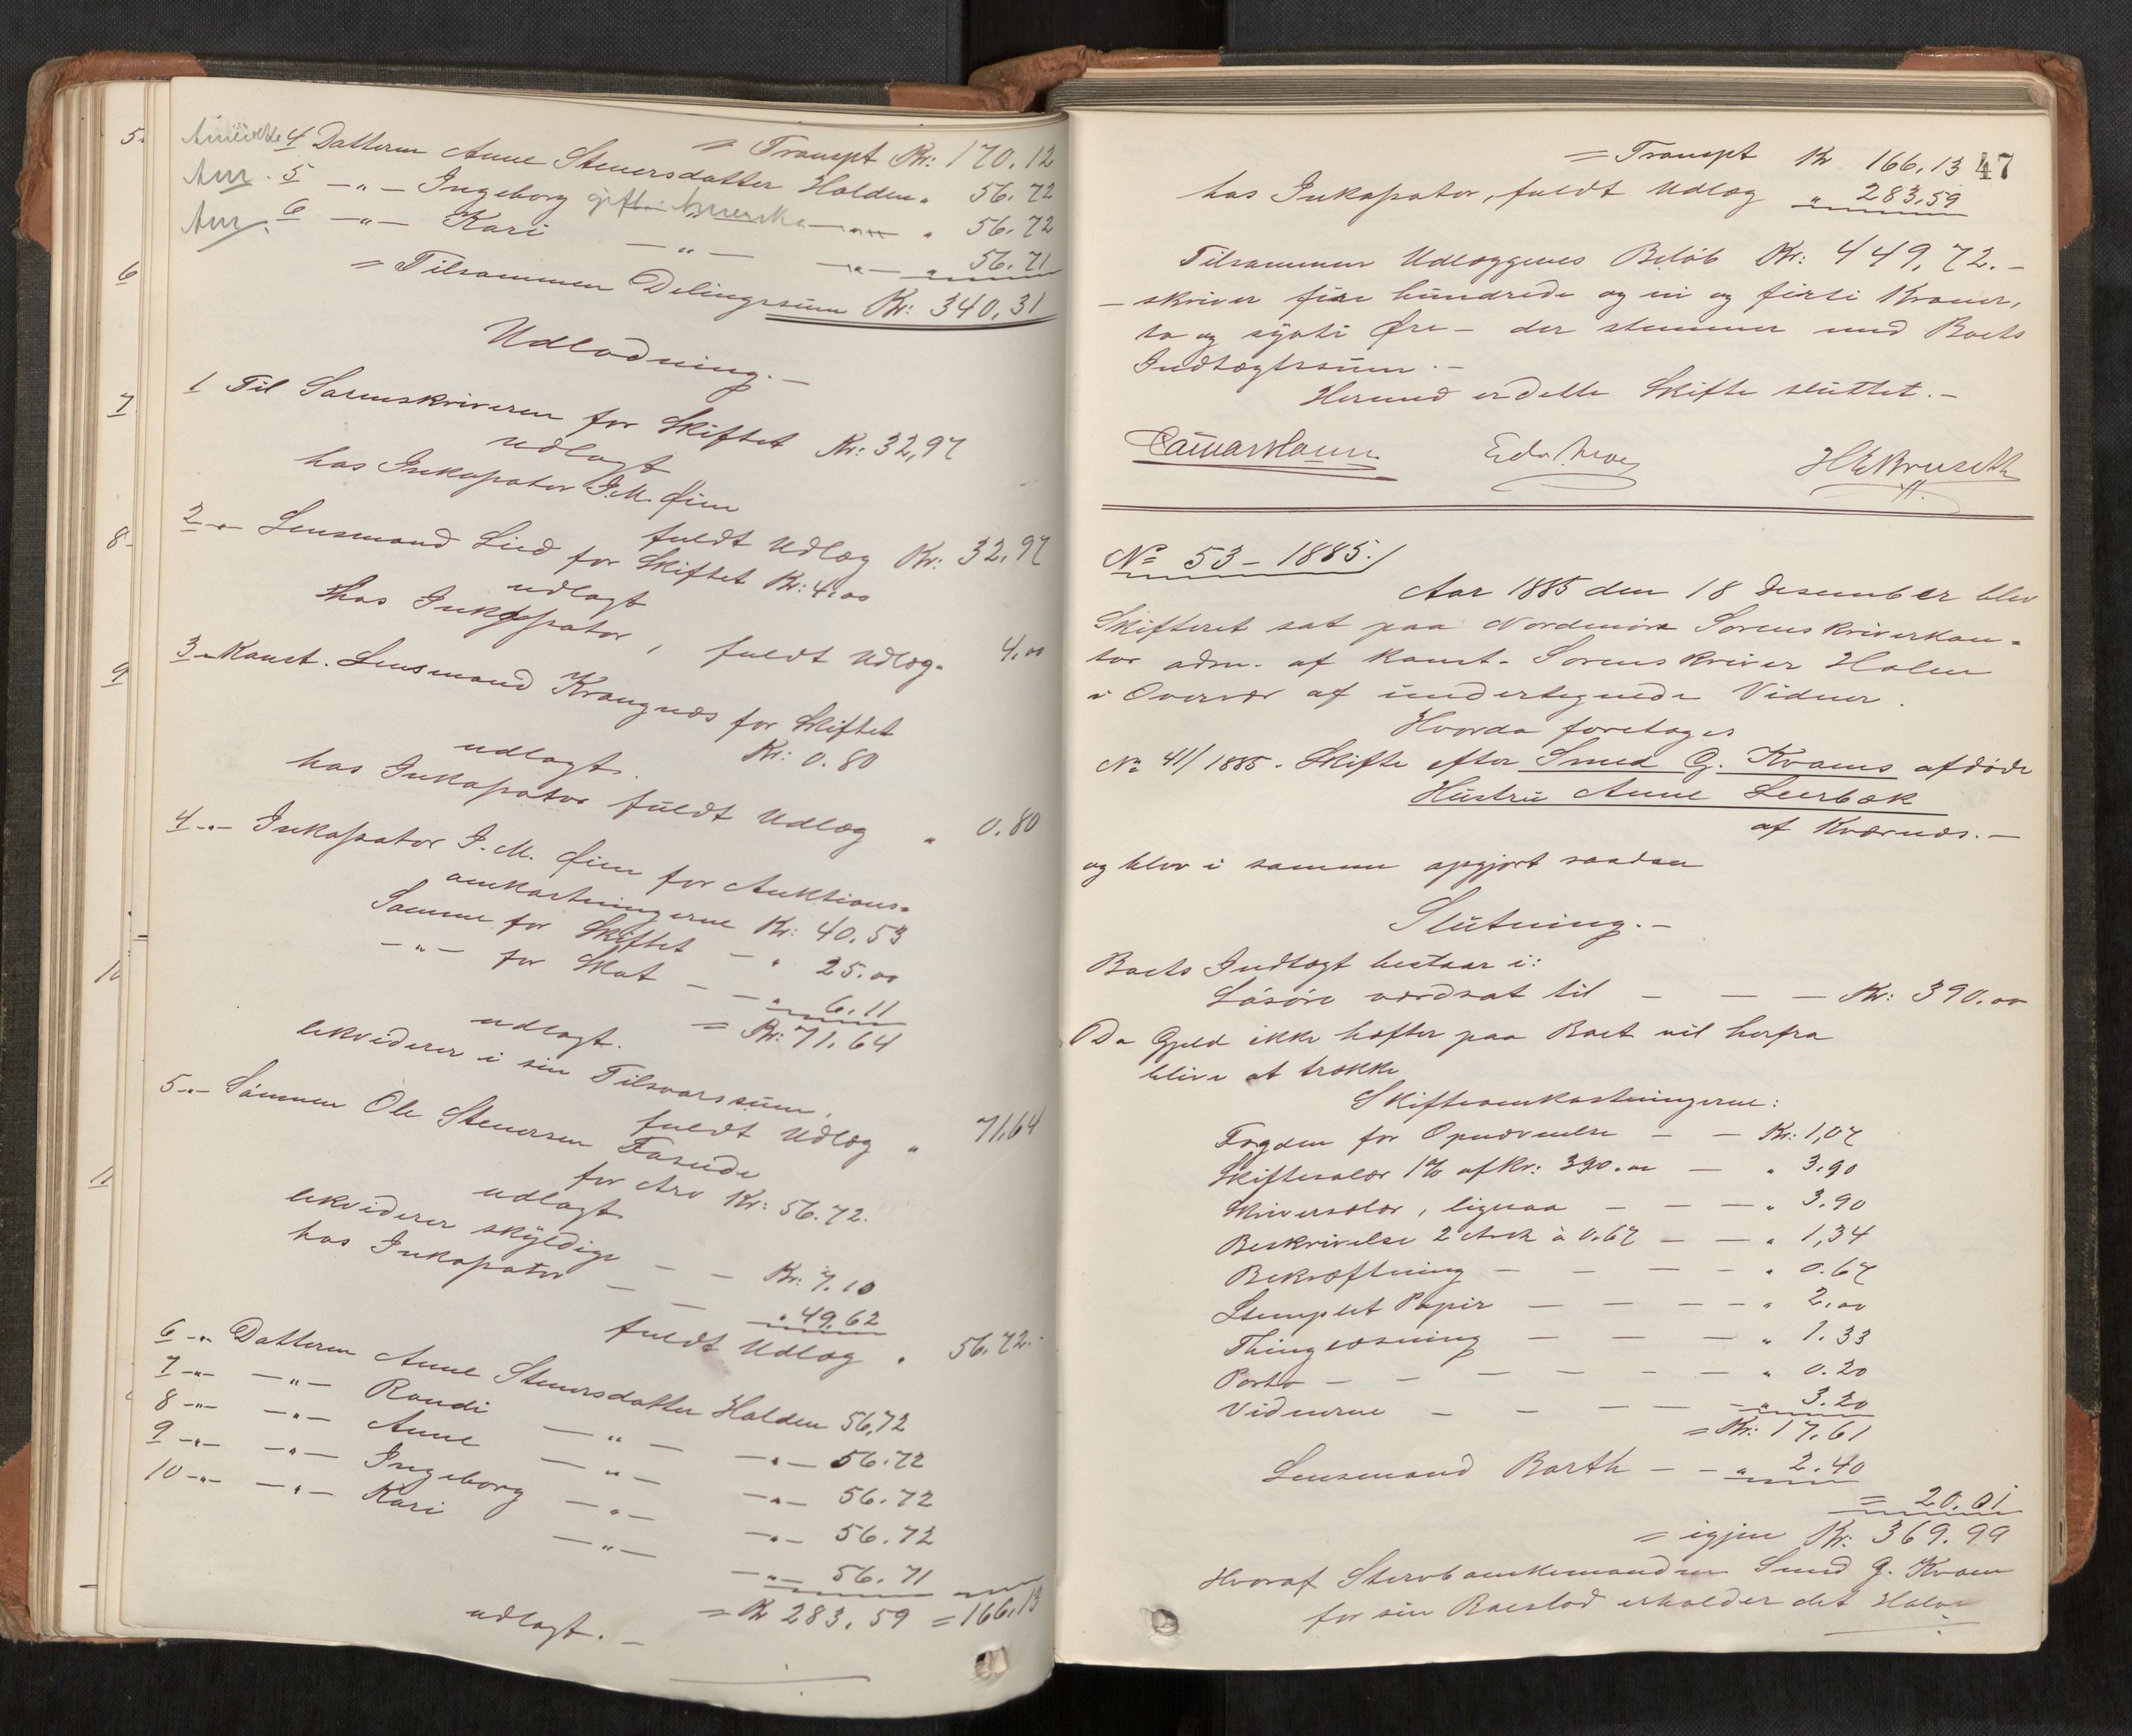 = Transpt Kr: 170.12
4 Datteren Anne Steuersdatter Holden " 56.72
Am. 5 —"— Ingeborg gift i Amerika —"— " 56.72
Am. 6 —"— Kari —"— —"— " 56.71
= Tilsammen Delingssum Kr: 340,31
Udlodning.—
1 Til Sorenskriveren for Skiftet Kr: 32,97
udlagt
hos Inkassator J. M. Øien
fuldt Udlæg Kr: 32.97
2 -"- Lensmand Lied for Skiftet Kr: 4.00
udlagt
hos Inkassator, fuldt Udlæg " 4,00
3 -"- Konst. Lensmand Krangnæs for Skiftet
Kr: 0.80
udlagt.
hos Inkassator fuldt Udlæg " 0.80
4 -"- Inkassator J. M. Øien for Auktions-
omkostningerne Kr: 40.53
Samme for Skiftet — " 25.00
—"— for Skat — — " 6.11
= Kr: 71.64
udlagt.
likviderer i sin Tilsvarssum.
fuldt Udlæg " 71,64
5 -"- Sønnen Ole Steuersen
for Arv Kr: 56.72.
udlagt
likviderer skyldige — — Kr: 7.10
hos Inkassator — — " 49.62
fuldt Udlæg " 56.72.-
6 -"- Datteren Anne Steuersdatter Holden 56,72
7 -"- —"— Randi —"— —"— 56.72
8 -"- —"— Anne —"— —"— 56.72
9 -"- —"— Ingeborg —"— —"— 56.72
10 -"- —"— Kari —"— —"— 56.71
= Kr 283.59 = 166.13
udlagt.—
5.
6
7
8
9
10
11
= Transpt Kr 166.13
47
hos Inkassator, fuldt Udlæg " 283,59
Tilsammen Udlæggenes Beløb Kr: 449,72.—
— skriver fire hundrede og ni og førti Kroner,
to og sytti Øre — der stemmer med Boets
Indtægtssum.—
Hermed er dette Skifte sluttet.—
No 53 – 1885./
Aar 1885 den 18 Desember blev
Skifteret sat paa Nordmøre Sorenskriverkon-
tor adm. af Konst. Sorenskriver Holm
i Overvær af undertegnede Vidner.
Hvorda foretoges
No 41/1885. Skifte efter Smed G. Kvams afdøde
Hustru Anne Leerbæk
af Kværnæs.—
og blev i samme opgjort saadan
Slutning.—
Boets Indtægt bestaar i:
Løsøre værdsat til — — — Kr: 390.00
Da Gjeld ikke hæfter paa Boet vil herfra
blive at trække
Skifteomkostningerne:
Fogden for Opnævnelse — — Kr: 1,07
Skiftesalær 1% af Kr: 390.00 — " 3.90
Skriversalær, ligesaa — — — " 3.90
Beskrivelse 2 Ark à 0.67 — — " 1,34
Bekræftning — — — — " 0.67
Stemplet Papir — — — — " 2.00
Thinglæsning — — — " 1.33
Porto — — — — — — " 0.20
Vidnerne — — — — — " 3.20
= Kr: 17.61
Lensmand Barth — — " 2.40
= 20.01
= igjen Kr: 369.99
Hvoraf Stervboenkemanden Smed G. Kvam
for sin Boeslod erholder det Halve